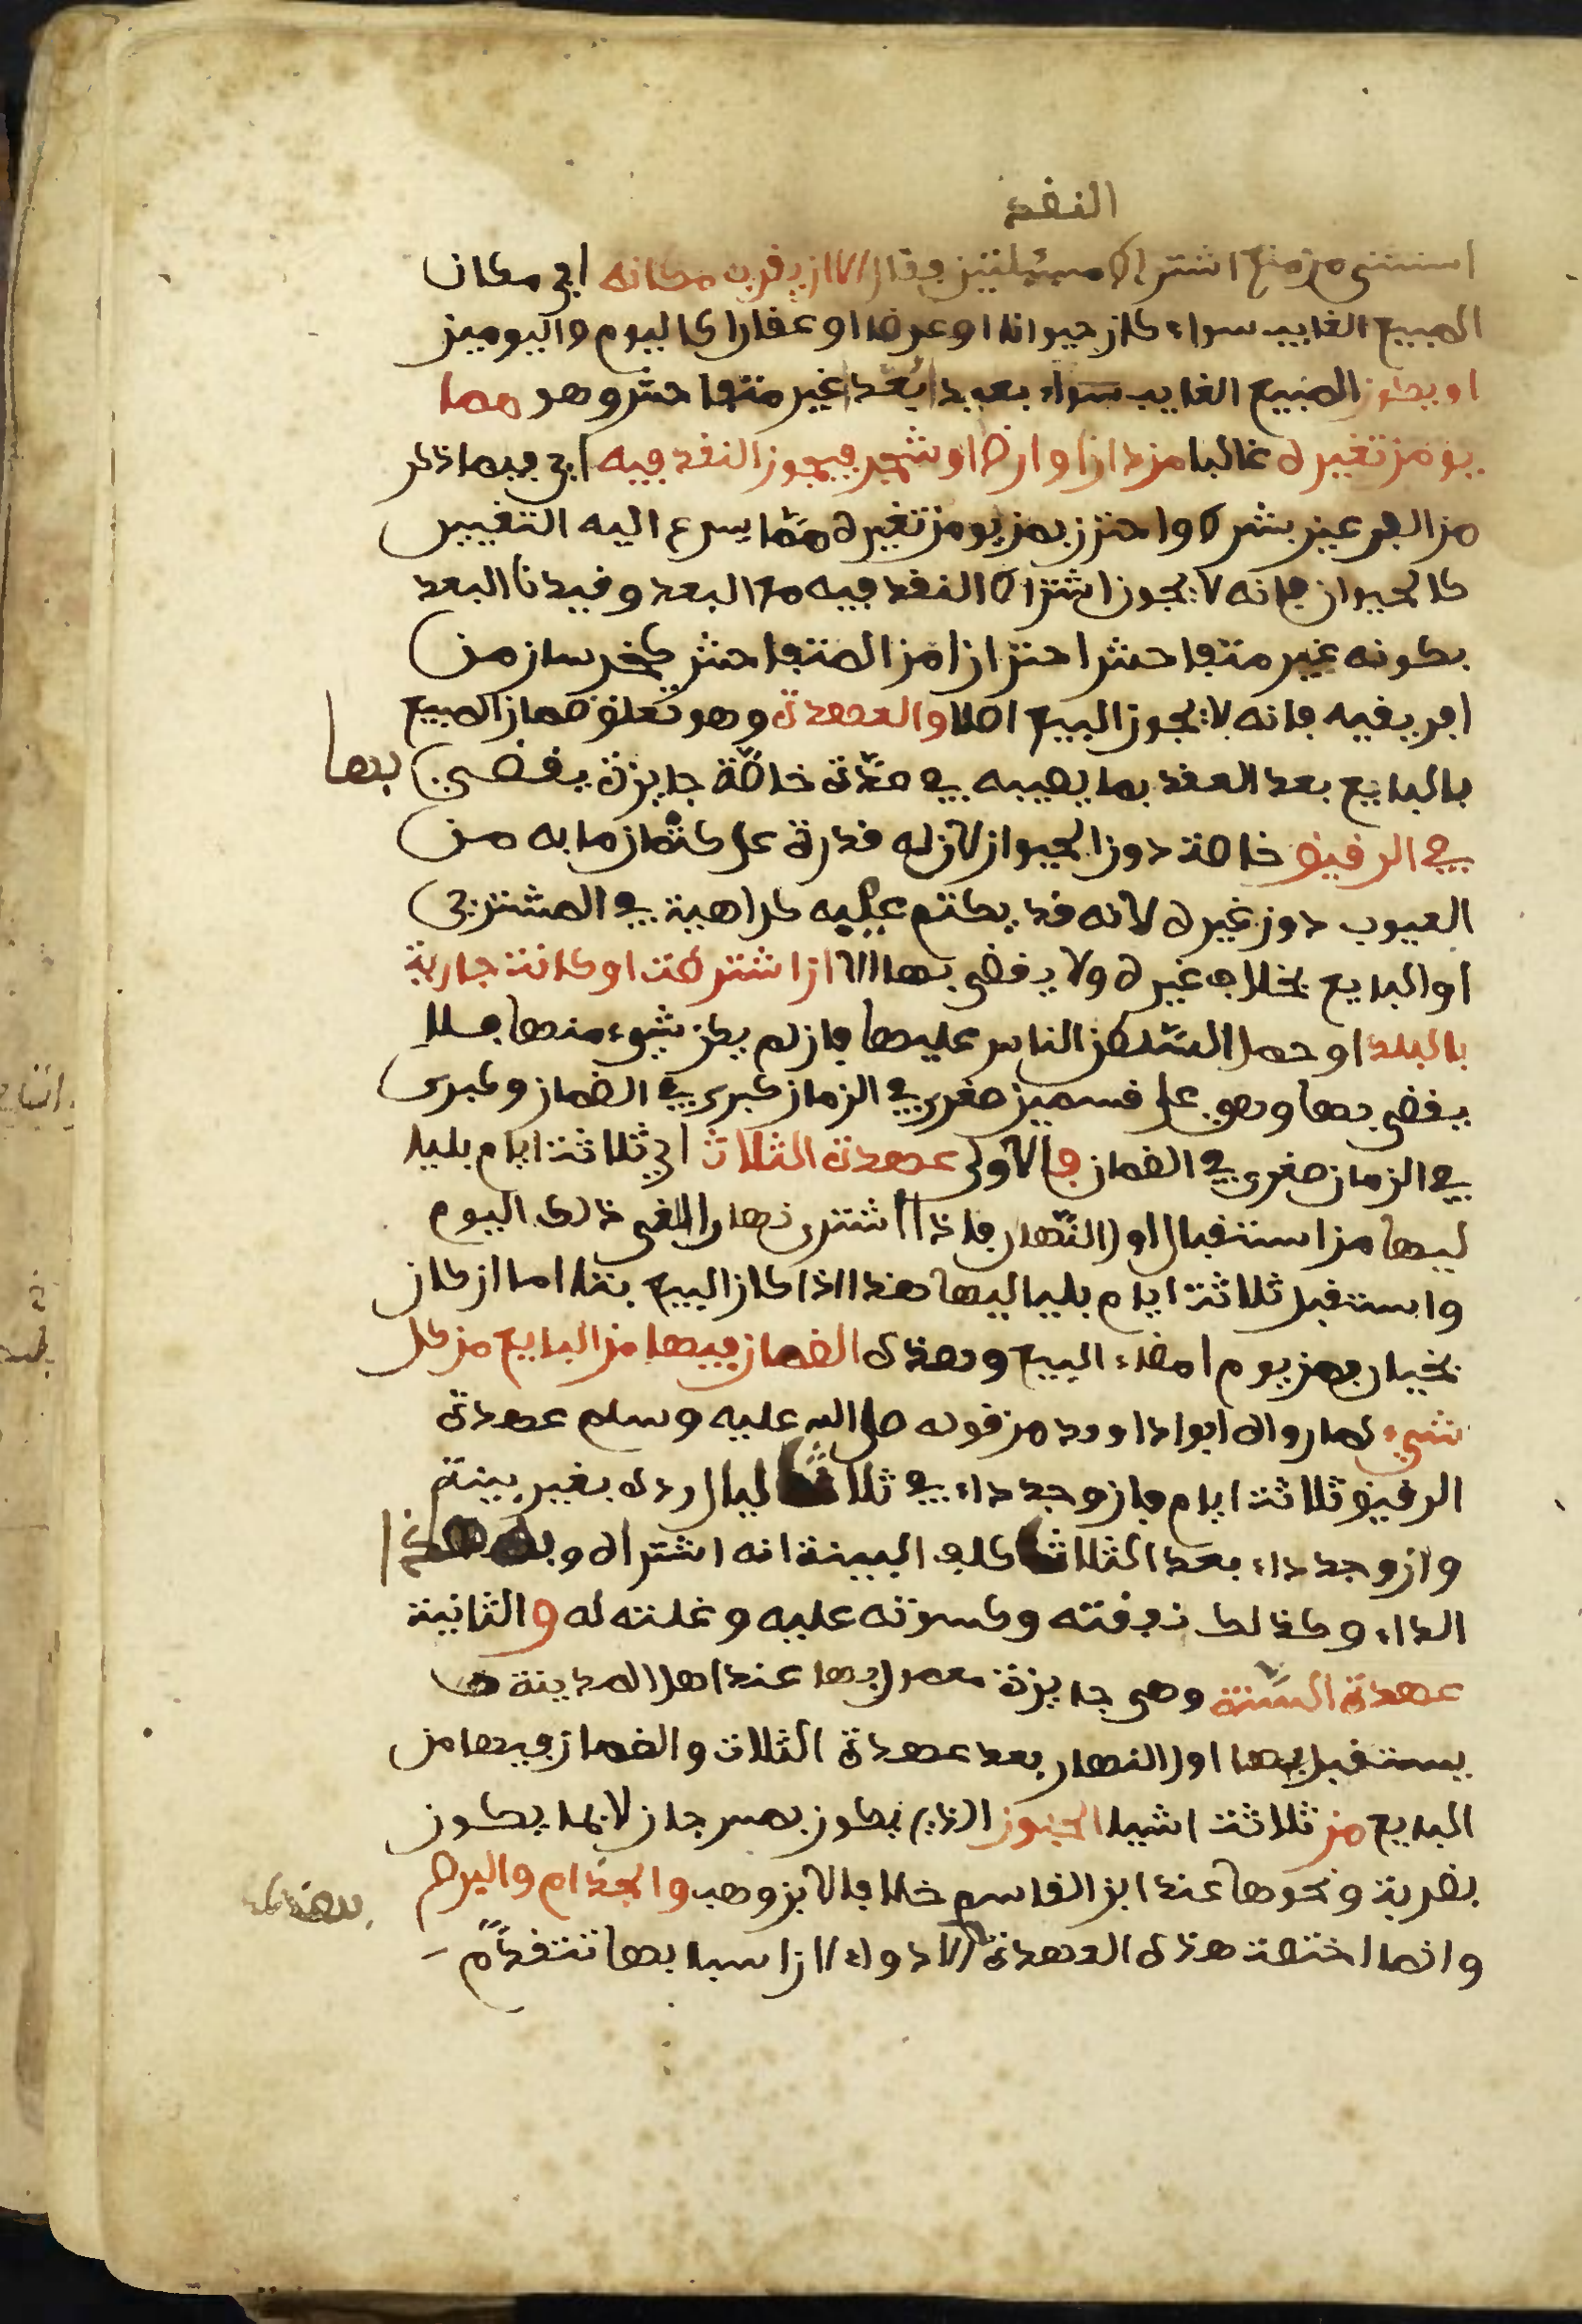 النقد
استثنى من منع اشتراط مسئلتين فقال الا ان يقرب مكانه اي مكان
المبيع الغايب سواء كان حيوانا او عرضا او عقارا كاليوم واليومين
او يكون المبيع الغايب سواء بعيدا بعد غير متفاحش وهو مما
يومن تغيره غالبا من دار او ارض او شجر فيجوز النقد فيه اي فيما ذكر
من العين بشرط واحترز بمن يومن تغيره مما يسرع اليه التغيير
كالحيوان فانه لا يجوز اشتراط النقد فيه مع البعد وقيدنا البعد
بكونه غير متفاحش احترازا من المتفاحش كخرسان من
افريقيه فانه لا يجوز البيع اصلا والعهدة وهو تعلق ضمان المبيع
بالبايع بعد العقد بما يصيبه في مدة خاصة جايزة يقضى بها
في الرقيق خاصة دون الحيوان لان له قدرة على كتمان ما به من
العيوب دون غيره لانه قد يكتم عيبه كراهية في المشتري
او البايع بخلاف غيره ولا يقضى بها الا ان اشترطت او كانت جارية
بالبلد او حمل السلطن الناس عليها فان لم يكن شيء منها فلا
يقضى بها وهي على قسمين صغرى في الزمان كبرى في الضمان وكبرى
في الزمان صغرى في الضمان فالاولى عهدة الثلاث اي ثلاثة ايام بليا
ليها من استقبال اول النهار فاذا اشترى نهارا الغي ذلك اليوم
واستقبل ثلاثة ايام بلياليها هذا اذا كان البيع بتا اما ان كان
بخيار فمن يوم امضاء البيع وهذه الضمان فيها من البايع من كل
شيء لما رواه ابوا داوود من قوله صلى الله عليه وسلم عهدة
الرقيق ثلاثة ايام فان وجد داء في ثلاث ليال رده بغير بينة
وان وجد داء بعد الثلاث كلف البينة انه اشتراه وبه هذا
الداء وكذلك نفقته وكسوته عليه وغلته له والثانية
عهدة السنة وهي جايزة معمول بها عند اهل المدينة
يستقبل بها اول النهار بعد عهدة الثلاث والضمان فيها من
البايع من ثلاثة اشيا الجنون الذي يكون بمس جان لا بما يكون
بضربة ونحوها عند ابن القاسم خلافا لابن وهب والجذام والبرص
وانما اختصت هذه العهدة الادواء لان اسبابها تتقدم بهذه